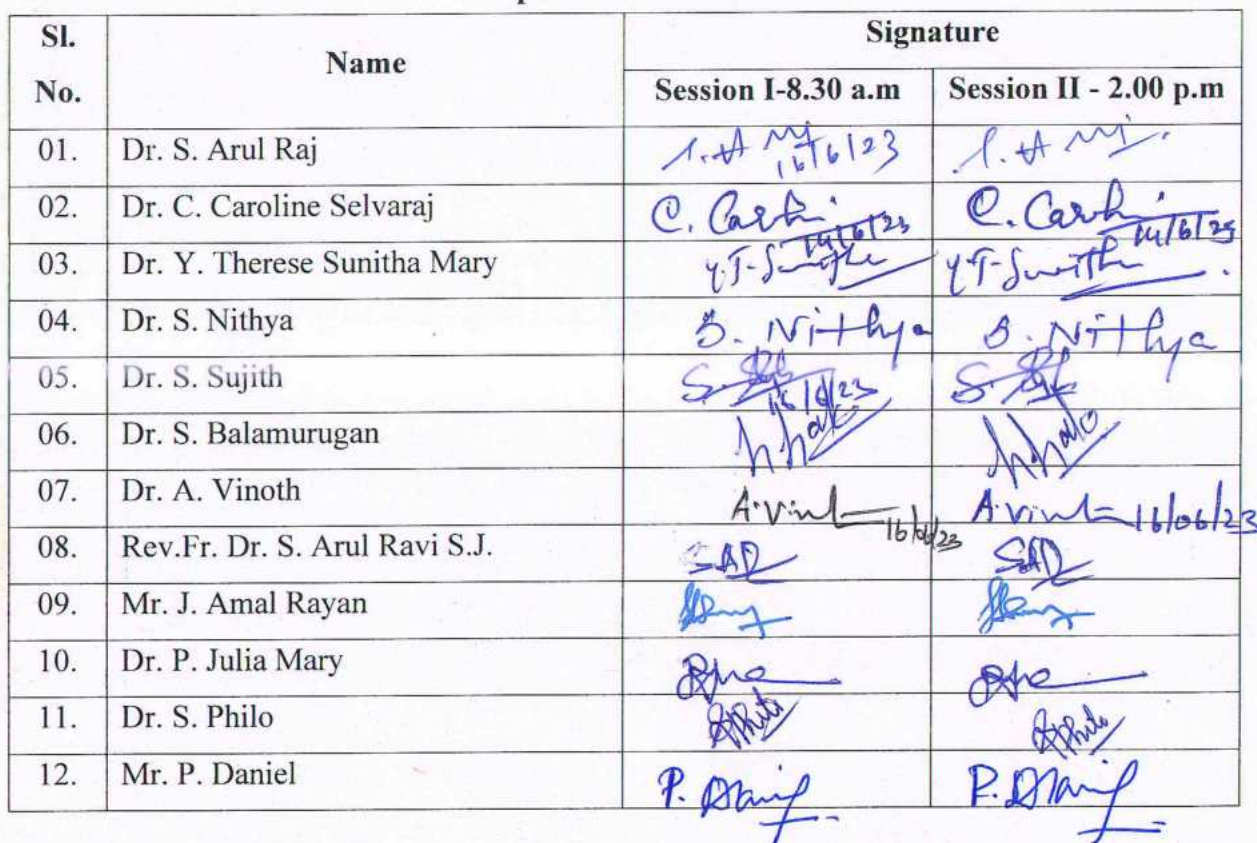 Sl. No. Name Signature
Session I-8.30 a.m Session II - 2.00 p.m
01. Dr. S. Arul Raj 16/6/23
02. Dr. C. Caroline Selvaraj C. 16/6/23 C. 16/6/23
03. Dr. Y. Therese Sunitha Mary Y.T-Sunitha Y.T-Sunitha
04. Dr. S. Nithya S. Nithya S. Nithya
05. Dr. S. Sujith S. 16/6/23 S.
06. Dr. S. Balamurugan
07. Dr. A. Vinoth A. Vinoth 16/06/23 A. Vinoth 16/06/23
08. Rev.Fr. Dr. S. Arul Ravi S.J.
09. Mr. J. Amal Rayan
10. Dr. P. Julia Mary
11. Dr. S. Philo Philo Philo
12. Mr. P. Daniel P. Daniel P. Daniel